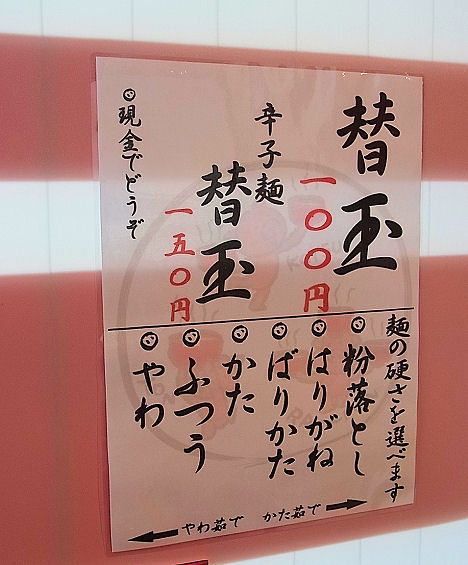 替玉
一〇〇円
辛子麺
替玉
一五〇円
現金でどうぞ
麺の硬さを選べます
粉落とし
はりがね
ばりかた
かた
ふつう
やわ
やわ茹で かた茹で